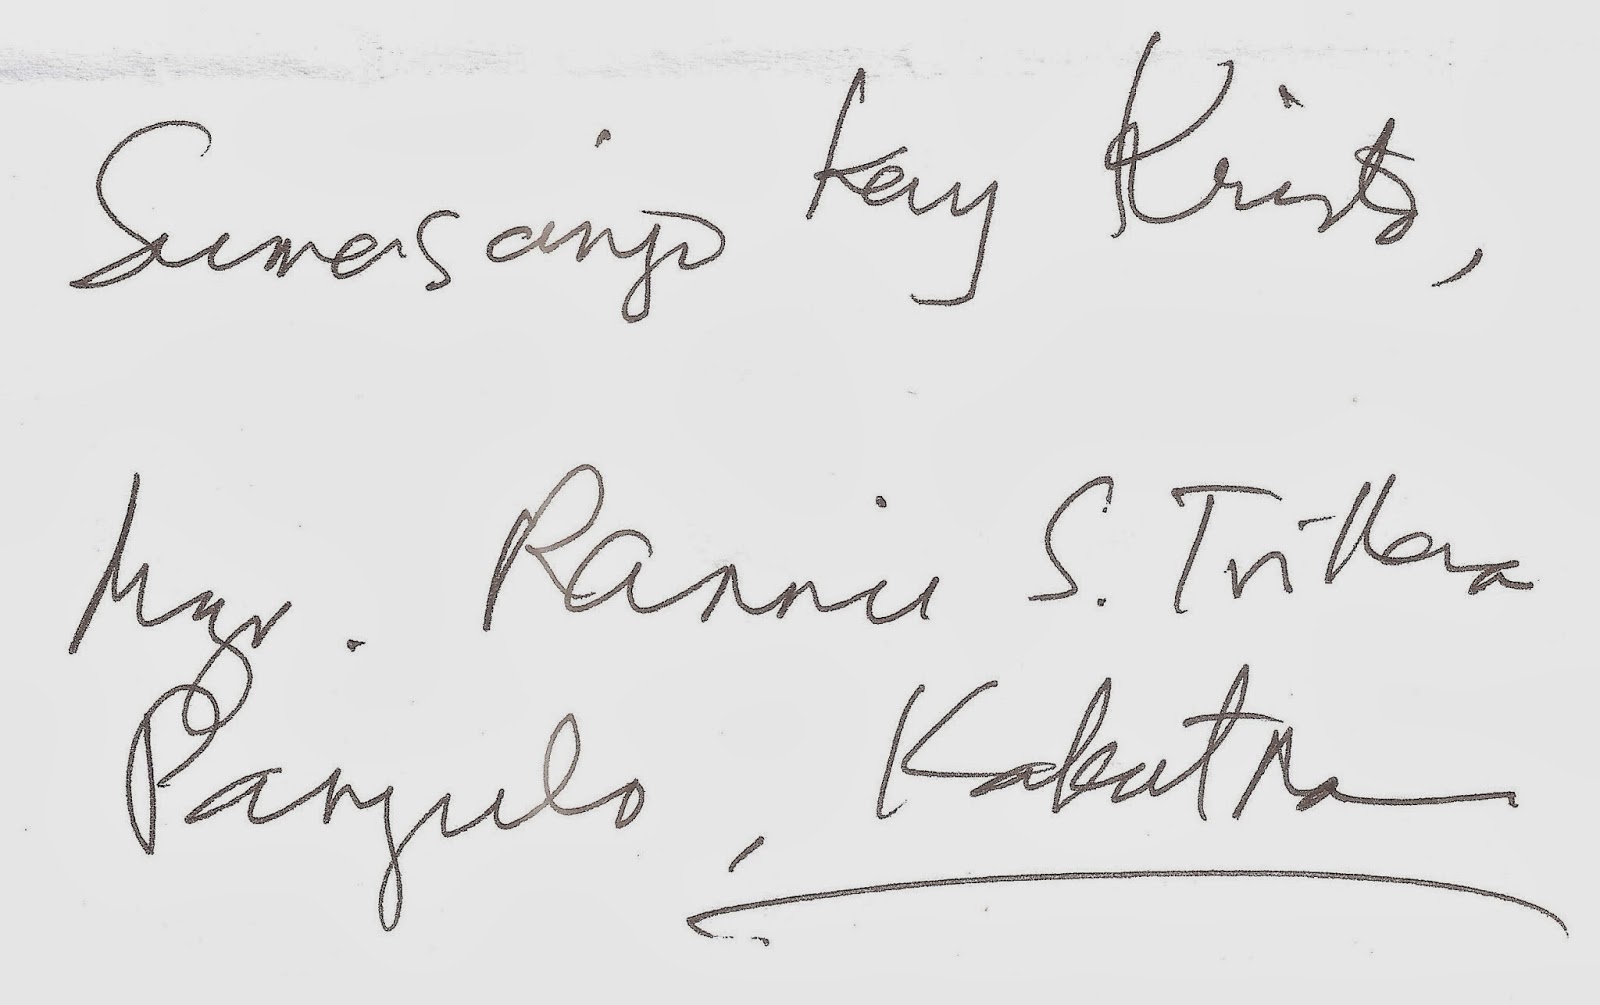 Sumasainyo kay Kristo,
Mgr. Rannie S. Trillera
Pangulo, Kakatna